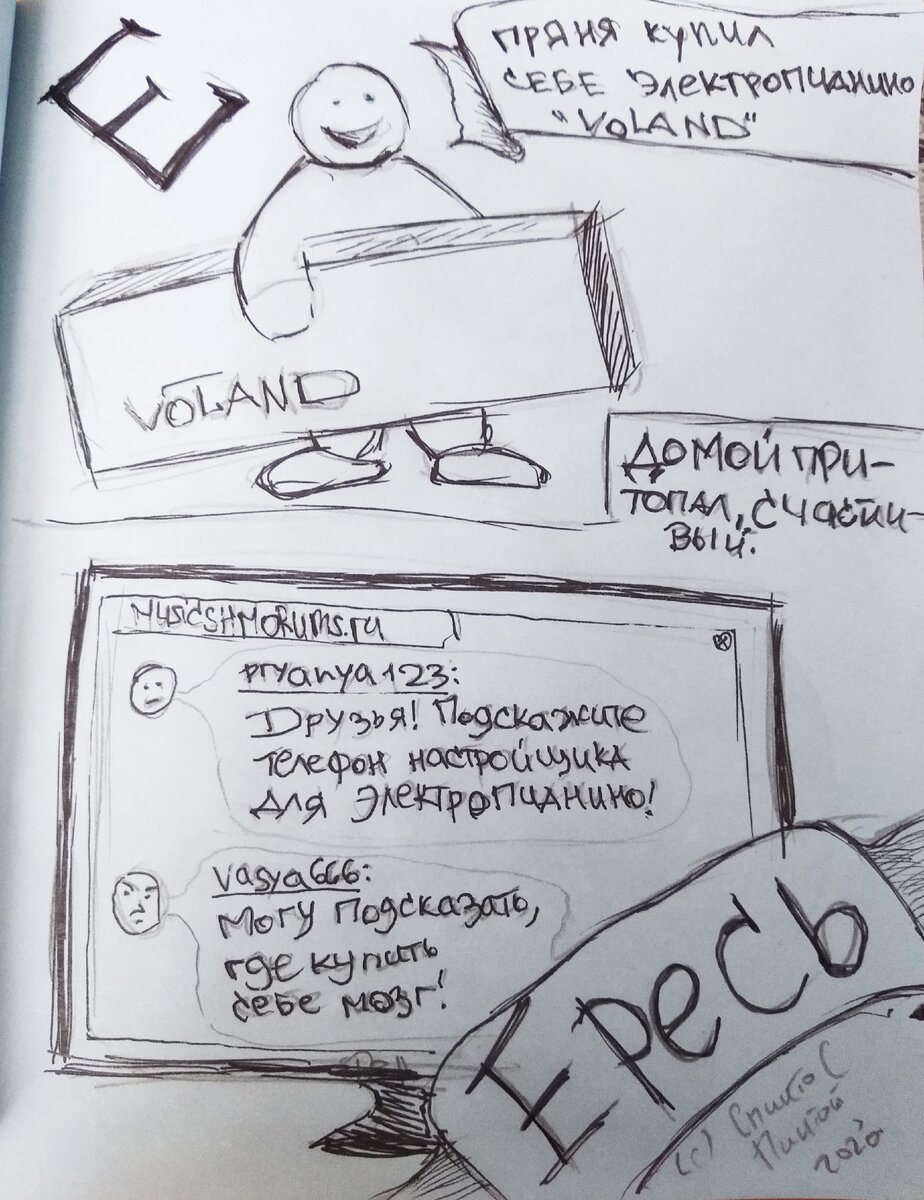 Е
ПРЯНЯ КУПИЛ
СЕБЕ ЭЛЕКТРОПИАНИНО
"VOLAND"
VOLAND
ДОМОЙ ПРИ-
ТОПАЛ, СЧАСТЛИ-
ВЫЙ.
MusicSHMORUMS.ru
pryanya123:
Друзья! Подскажите
телефон настройщика
для электропианино!
vasya666:
Могу подсказать,
где купить
себе мозг!
Ересь
(c)
2020